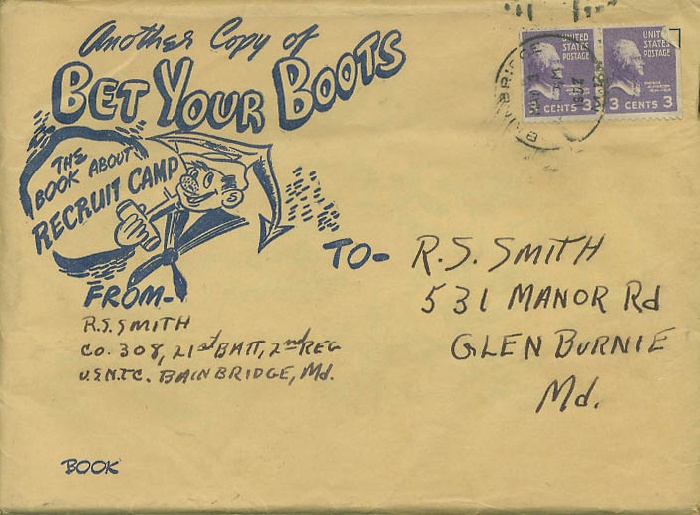 Another Copy of
BET YOUR BOOTS
THE
BOOK ABOUT
RECRUIT CAMP
UNITED
STATES
POSTAGE
CENTS
UNITED
STATES
POSTAGE
3 CENTS 3
BRIDGE
TO-
R.S. SMITH
531 MANOR Rd
GLEN BURNIE
Md.
FROM-
R.S. SMITH
CO. 308, 21st BATT, 2nd REG
U.S.N.T.C. BAINBRIDGE, Md.
BOOK